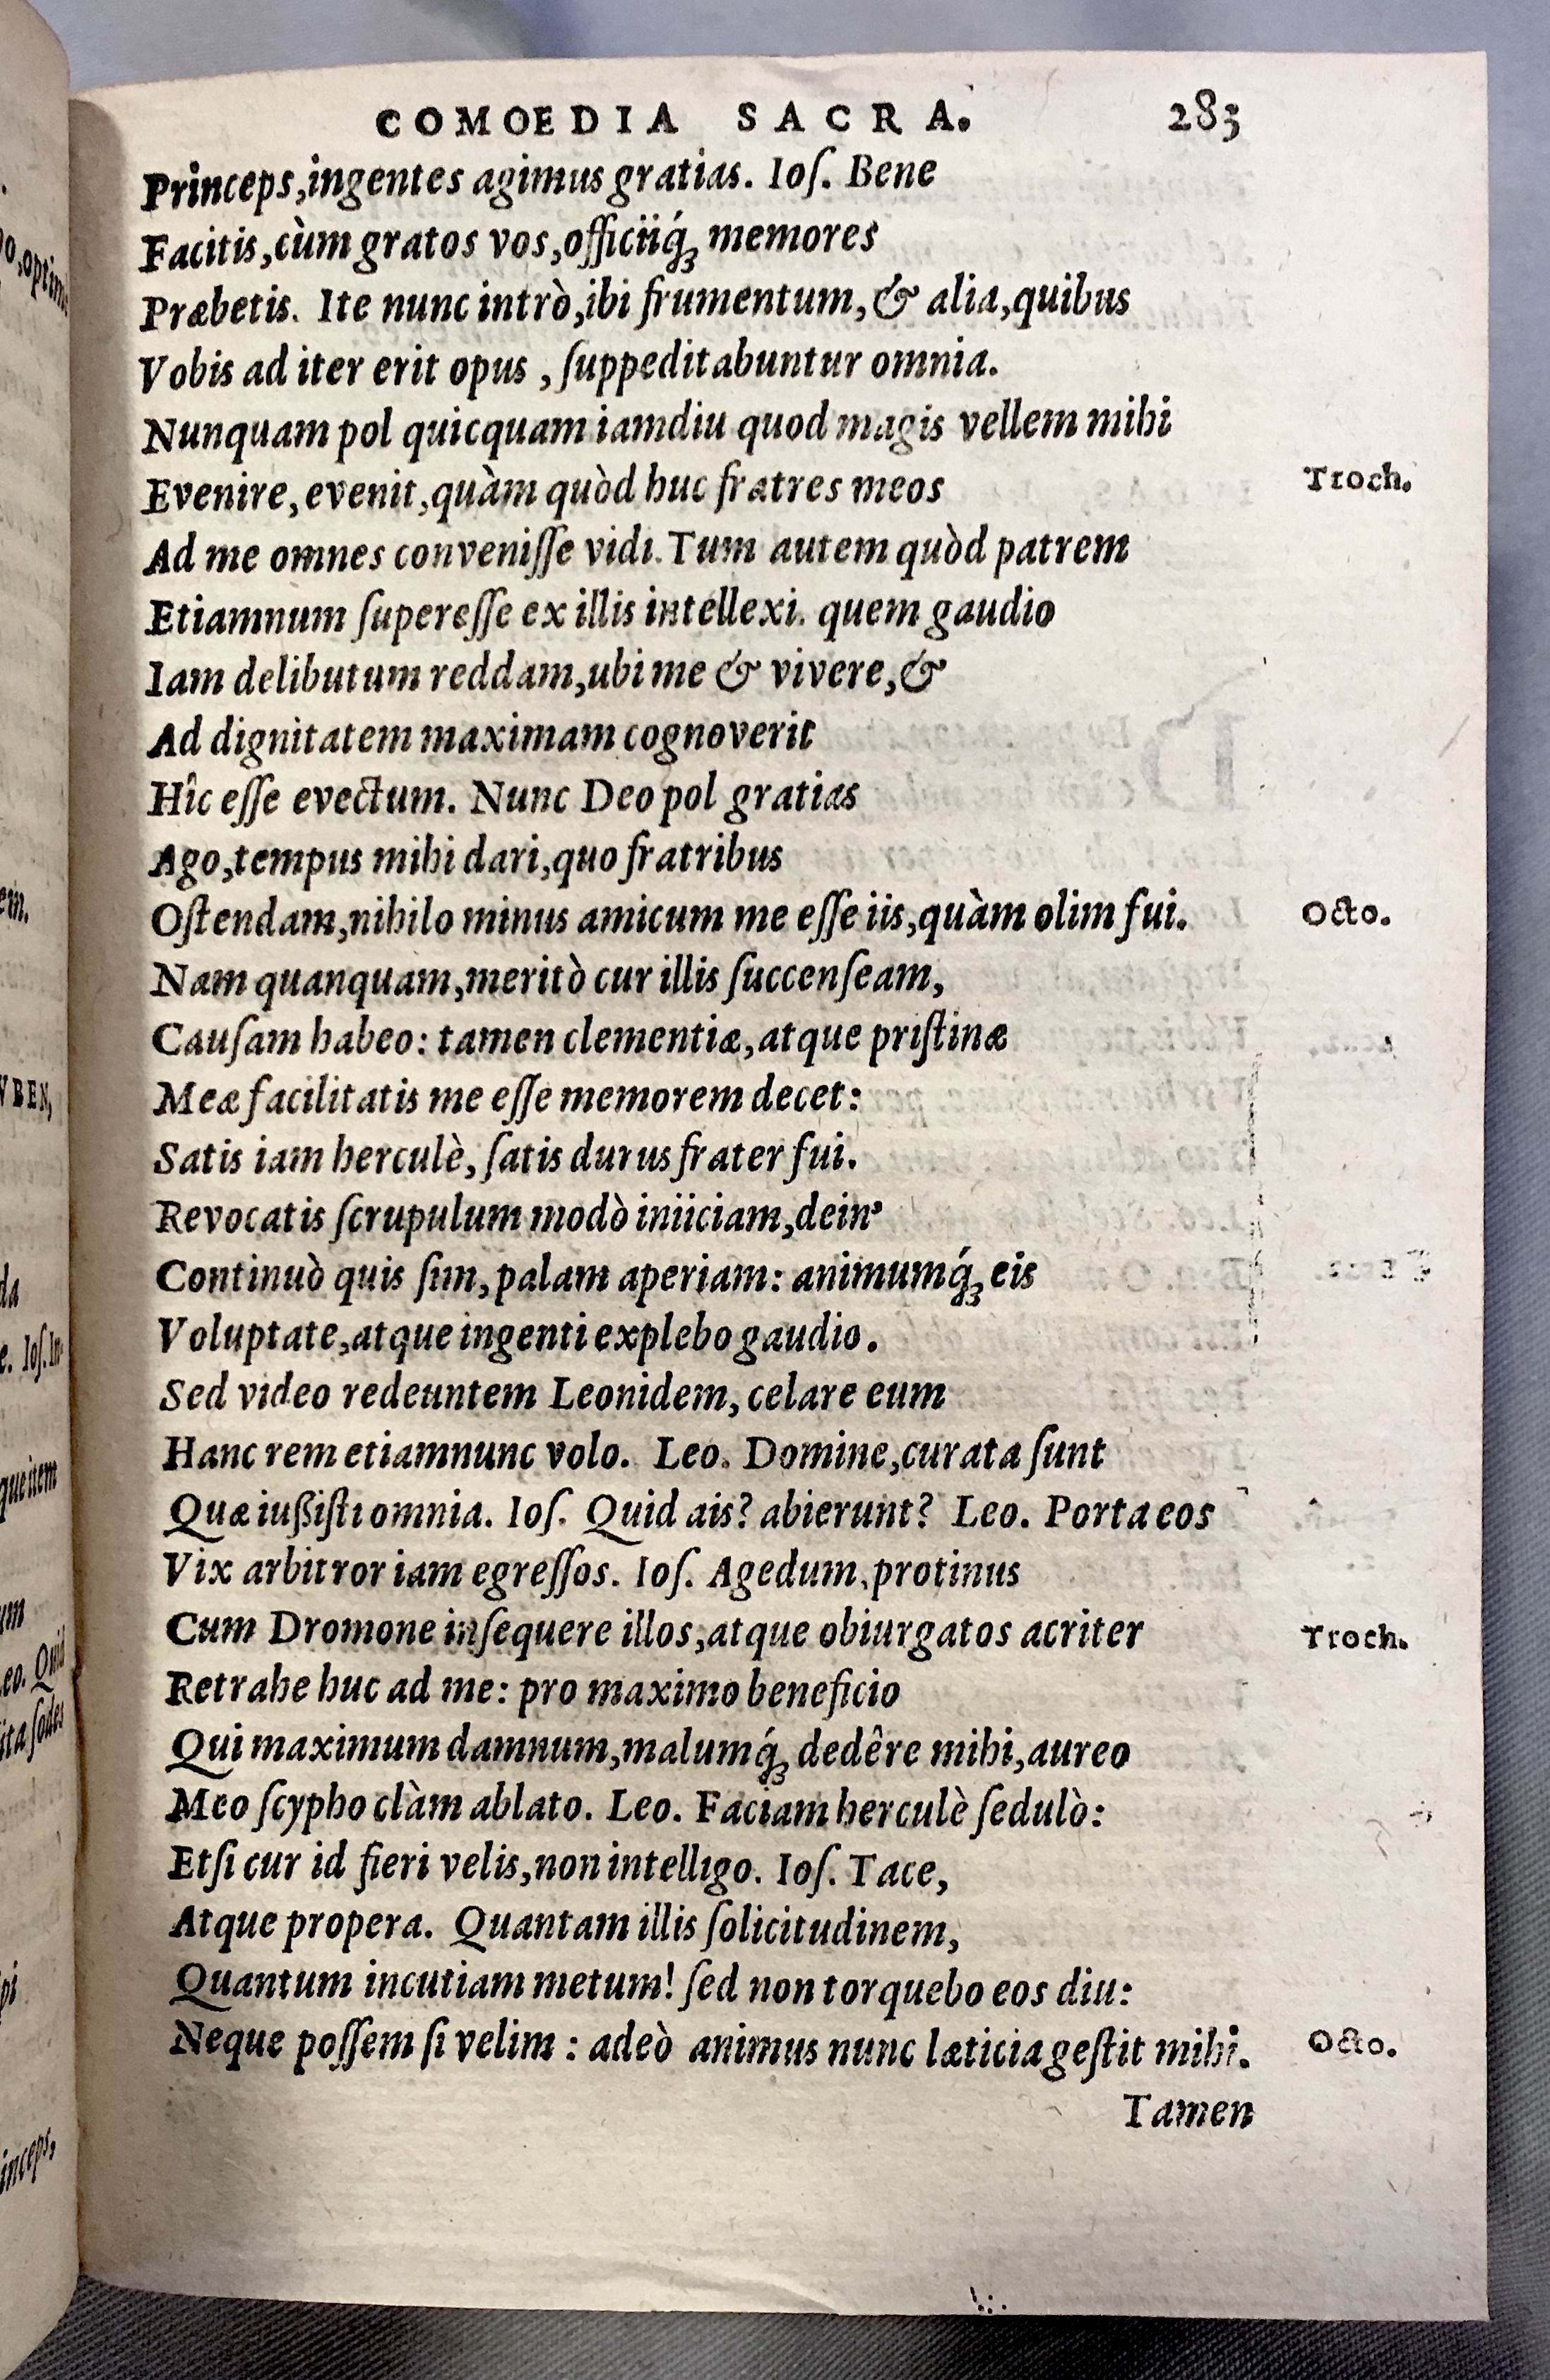 COMOEDIA SACRA. 283
Princeps,ingentes agimus gratias. Ioſ. Bene
Facitis,cùm gratos vos,officiiq́ꝫ memores
Præbetis. Ite nunc intrò,ibi frumentum,& alia,quibus
Vobis ad iter erit opus , ſuppeditabuntur omnia.
Nunquam pol quicquam iamdiu quod magis vellem mihi
Evenire,evenit,quàm quòd huc fratres meos Troch.
Ad me omnes conveniſſe vidi.Tum autem quòd patrem
Etiamnum ſupereſſe ex illis intellexi. quem gaudio
Iam delibutum reddam,ubi me & vivere,&
Ad dignitatem maximam cognoverit
Hîc eſſe evectum. Nunc Deo pol gratias
Ago,tempus mihi dari,quo fratribus
Oſtendam,nihilo minus amicum me eſſe iis,quàm olim fui. Octo.
Nam quanquam,meritò cur illis ſuccenſeam,
Cauſam habeo: tamen clementiæ,atque priſtinæ
Meæ facilitatis me eſſe memorem decet:
Satis iam herculè, ſatis durus frater fui.
Revocatis ſcrupulum modò iniiciam,dein'
Continuò quis ſim,palam aperiam: animumq́ꝫ eis
Voluptate,atque ingenti explebo gaudio.
Sed video redeuntem Leonidem, celare eum
Hanc rem etiamnunc volo. Leo. Domine,curata ſunt
Quæ iußiſti omnia. Ioſ. Quid ais? abierunt? Leo. Porta eos
Vix arbitror iam egreſſos. Ioſ. Agedum,protinus
Cum Dromone inſequere illos,atque obiurgatos acriter Troch.
Retrahe huc ad me: pro maximo beneficio
Qui maximum damnum,malumq́ꝫ dedêre mihi,aureo
Meo ſcypho clàm ablato. Leo. Faciam herculè ſedulò:
Etſi cur id fieri velis,non intelligo. Ioſ. Tace,
Atque propera. Quantam illis ſolicitudinem,
Quantum incutiam metum! ſed non torquebo eos diu:
Neque poſſem ſi velim : adeò animus nunc læticia geſtit mihi. Octo.
Tamen